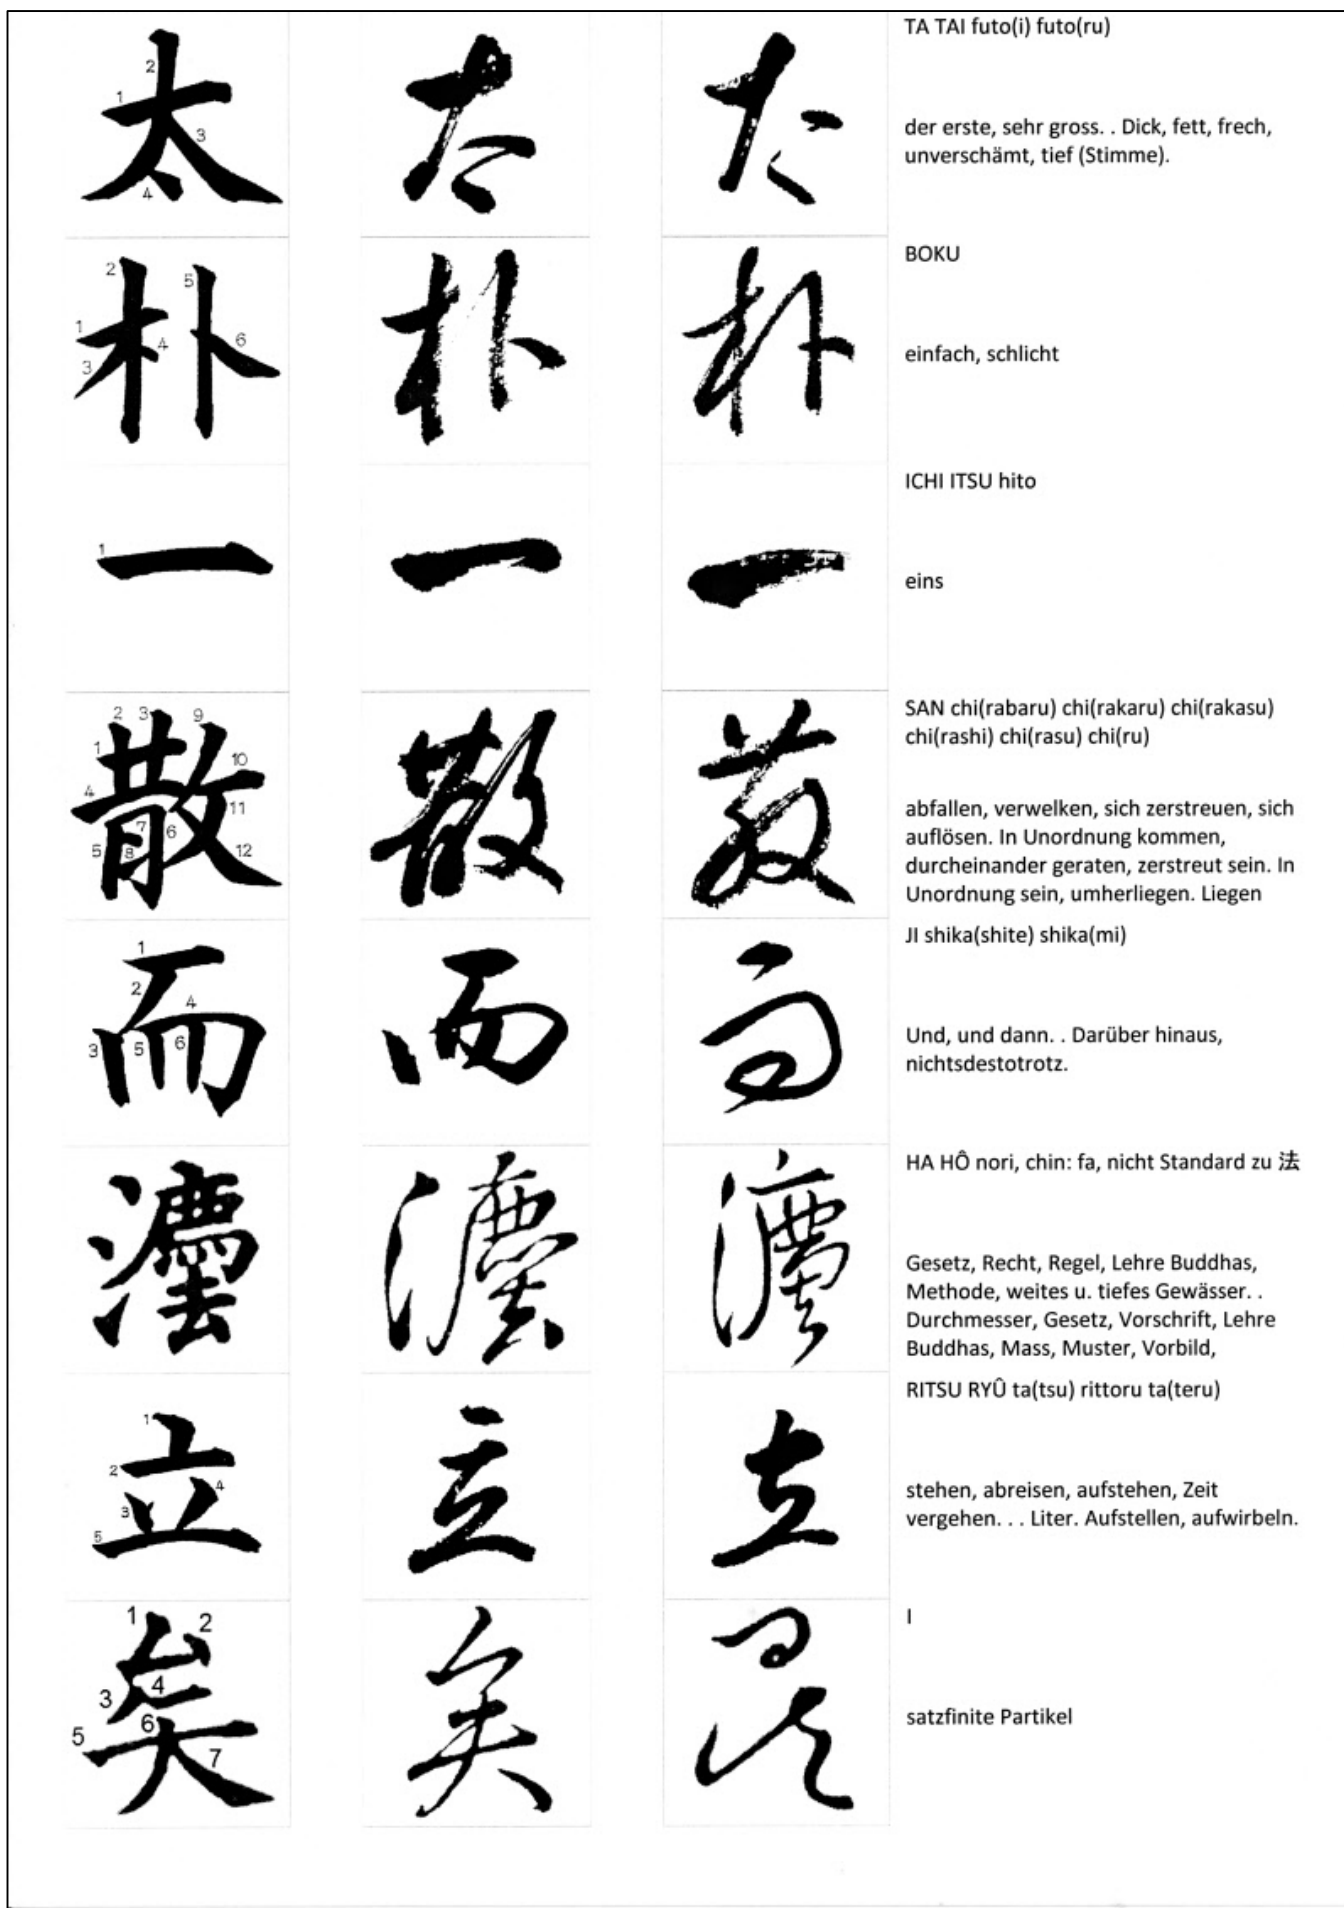 太 太 太 TA TAI futo(i) futo(ru)
1 2 3 4
der erste, sehr gross. . Dick, fett, frech,
unverschämt, tief (Stimme).
朴 朴 朴 BOKU
1 2 3 4 5 6
einfach, schlicht
一 一 一 ICHI ITSU hito
1
eins
散 散 散 SAN chi(rabaru) chi(rakaru) chi(rakasu)
chi(rashi) chi(rasu) chi(ru)
1 2 3 4 5 6 7 8 9 10 11 12
abfallen, verwelken, sich zerstreuen, sich
auflösen. In Unordnung kommen,
durcheinander geraten, zerstreut sein. In
Unordnung sein, umherliegen. Liegen
而 而 而 JI shika(shite) shika(mi)
1 2 3 4 5 6
Und, und dann. . Darüber hinaus,
nichtsdestotrotz.
灋 灋 灋 HA HÔ nori, chin: fa, nicht Standard zu 法
Gesetz, Recht, Regel, Lehre Buddhas,
Methode, weites u. tiefes Gewässer. .
Durchmesser, Gesetz, Vorschrift, Lehre
Buddhas, Mass, Muster, Vorbild,
立 立 立 RITSU RYÛ ta(tsu) rittoru ta(teru)
1 2 3 4 5
stehen, abreisen, aufstehen, Zeit
vergehen. . . Liter. Aufstellen, aufwirbeln.
矣 矣 矣 I
1 2 3 4 5 6 7
satzfinite Partikel